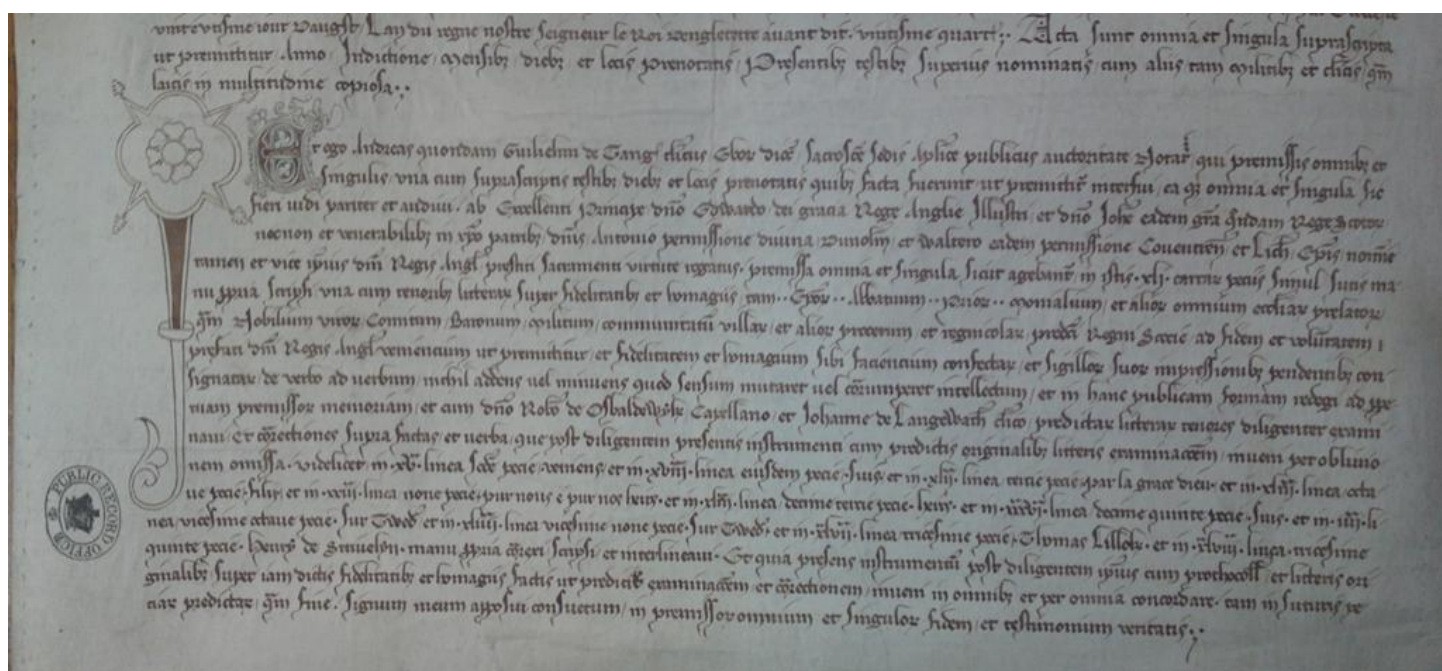 vintevtisme iour Daugst. Lan du regne nostre Seigneur le Roi Dengleterre auant dit. vintisme quart. Acta sunt omnia et singula suprascripta
ut premittitur. Anno, Indictione, Mensibꝫ, diebꝫ et locis prenotatis, Presentibꝫ testibꝫ superius nominatis, cum aliis tam militibꝫ et cl̃icis, qm̃
laicis in multitudine copiosa.
Et ego Andreas quondam Guilielmi de Tang̃ cl̃icus Ebor dioc̃ sacrosc̃e sedis ap̃lice publicus auctoritate Notar̃ qui premissis omnibꝫ et
singulis, vna cum suprascriptis testibꝫ diebꝫ et locis prenotatis quibꝫ facta fuerunt ut premittit̃ interfui, ea qꝫ omnia et singula sic
fieri uidi pariter et audiui. ab Excellenti Principe dño Edwardo dei gracia Rege Anglie Illustri, et dño Joħe eadem grã quõdam Rege Scotor
necnon et venerabilibꝫ in xp̃o patribꝫ dñis Antonio permissione diuina Dunolm̃, et Waltero eadem permissione Couentreñ et Lich̃ Ep̃is noĩe
tamen et vice ip̃ius dñi Regis Angl̃ prestiti sacramenti virtute rogatus, premissa omnia et singula sicut agebant̃ in istis xlj. cartar peciis simul sutis ma
nu ꝓpria scripsi vna cum tenoribꝫ litterar super fidelitatibꝫ et homagiis tam Ep̃or Abbatum Prior monialium, et alior omnium eccl̃iar prelator,
qm̃ Nobilium viror Comitum, Baronum, militum, communitatũ villar, et alior procerum et regnicolar predc̃i Regni Scocie ad fidem et volũtatem
prefati dñi Regis Angl̃ veniencium ut premittitur, et fidelitatem et homagium sibi faciencium confectar, et sigillor suor impressionibꝫ pendentibꝫ con
signatar de verbo ad uerbum nichil addens uel minuens quod sensum mutaret uel corrumperet intellectum, et in hanc publicam formam redegi ad ꝓpe
tuam premissor memoriam, et cum dño Rob̃to de Capellano, et Johanne de Langewath cl̃ico, predictar litterar tenores diligenter exami
naui. Et correctiones supra factas, et uerba, que post diligentem presentis instrumenti cum predictis originalibꝫ litteris examinacõem, inueni per obliuio
nem omissa. videlicet in xv. linea sc̃de pecie, veniens, et in xviij. linea eiusdem pecie, suis, et in xlij. linea tercie pecie, par la grace dieu, et in linea octa
ue pecie, filit, et in xxiij. linea none pecie, pur nous e pur nos heirs, et in linea decime tercie pecie, heirs, et in linea decime quinte pecie, suis, et in iiij. li
nea vicesime octaue pecie, sur Twed, et in xliiij. linea vicesime none pecie, sur Twed, et in linea tricesime pecie, Thomas Lillok, et in xlviij. linea tricesime
quinte pecie, Henry de manu ꝓpria correxi scripsi et interlineaui. Et quia presens instrumentũ post diligentem ip̃ius cum prothocoll̃ et litteris ori
ginalibꝫ super iam dictis fidelitatibꝫ et homagiis factis ut predicit̃ examinacõem et correctionem, inueni in omnibꝫ et per omnia concordare, tam in suturis pe
ciar predictar, qm̃ sine, signum meum apposui consuetum, in premissor omnium et singulor fidem, et testimonium veritatis.
PUBLIC RECORD OFFICE